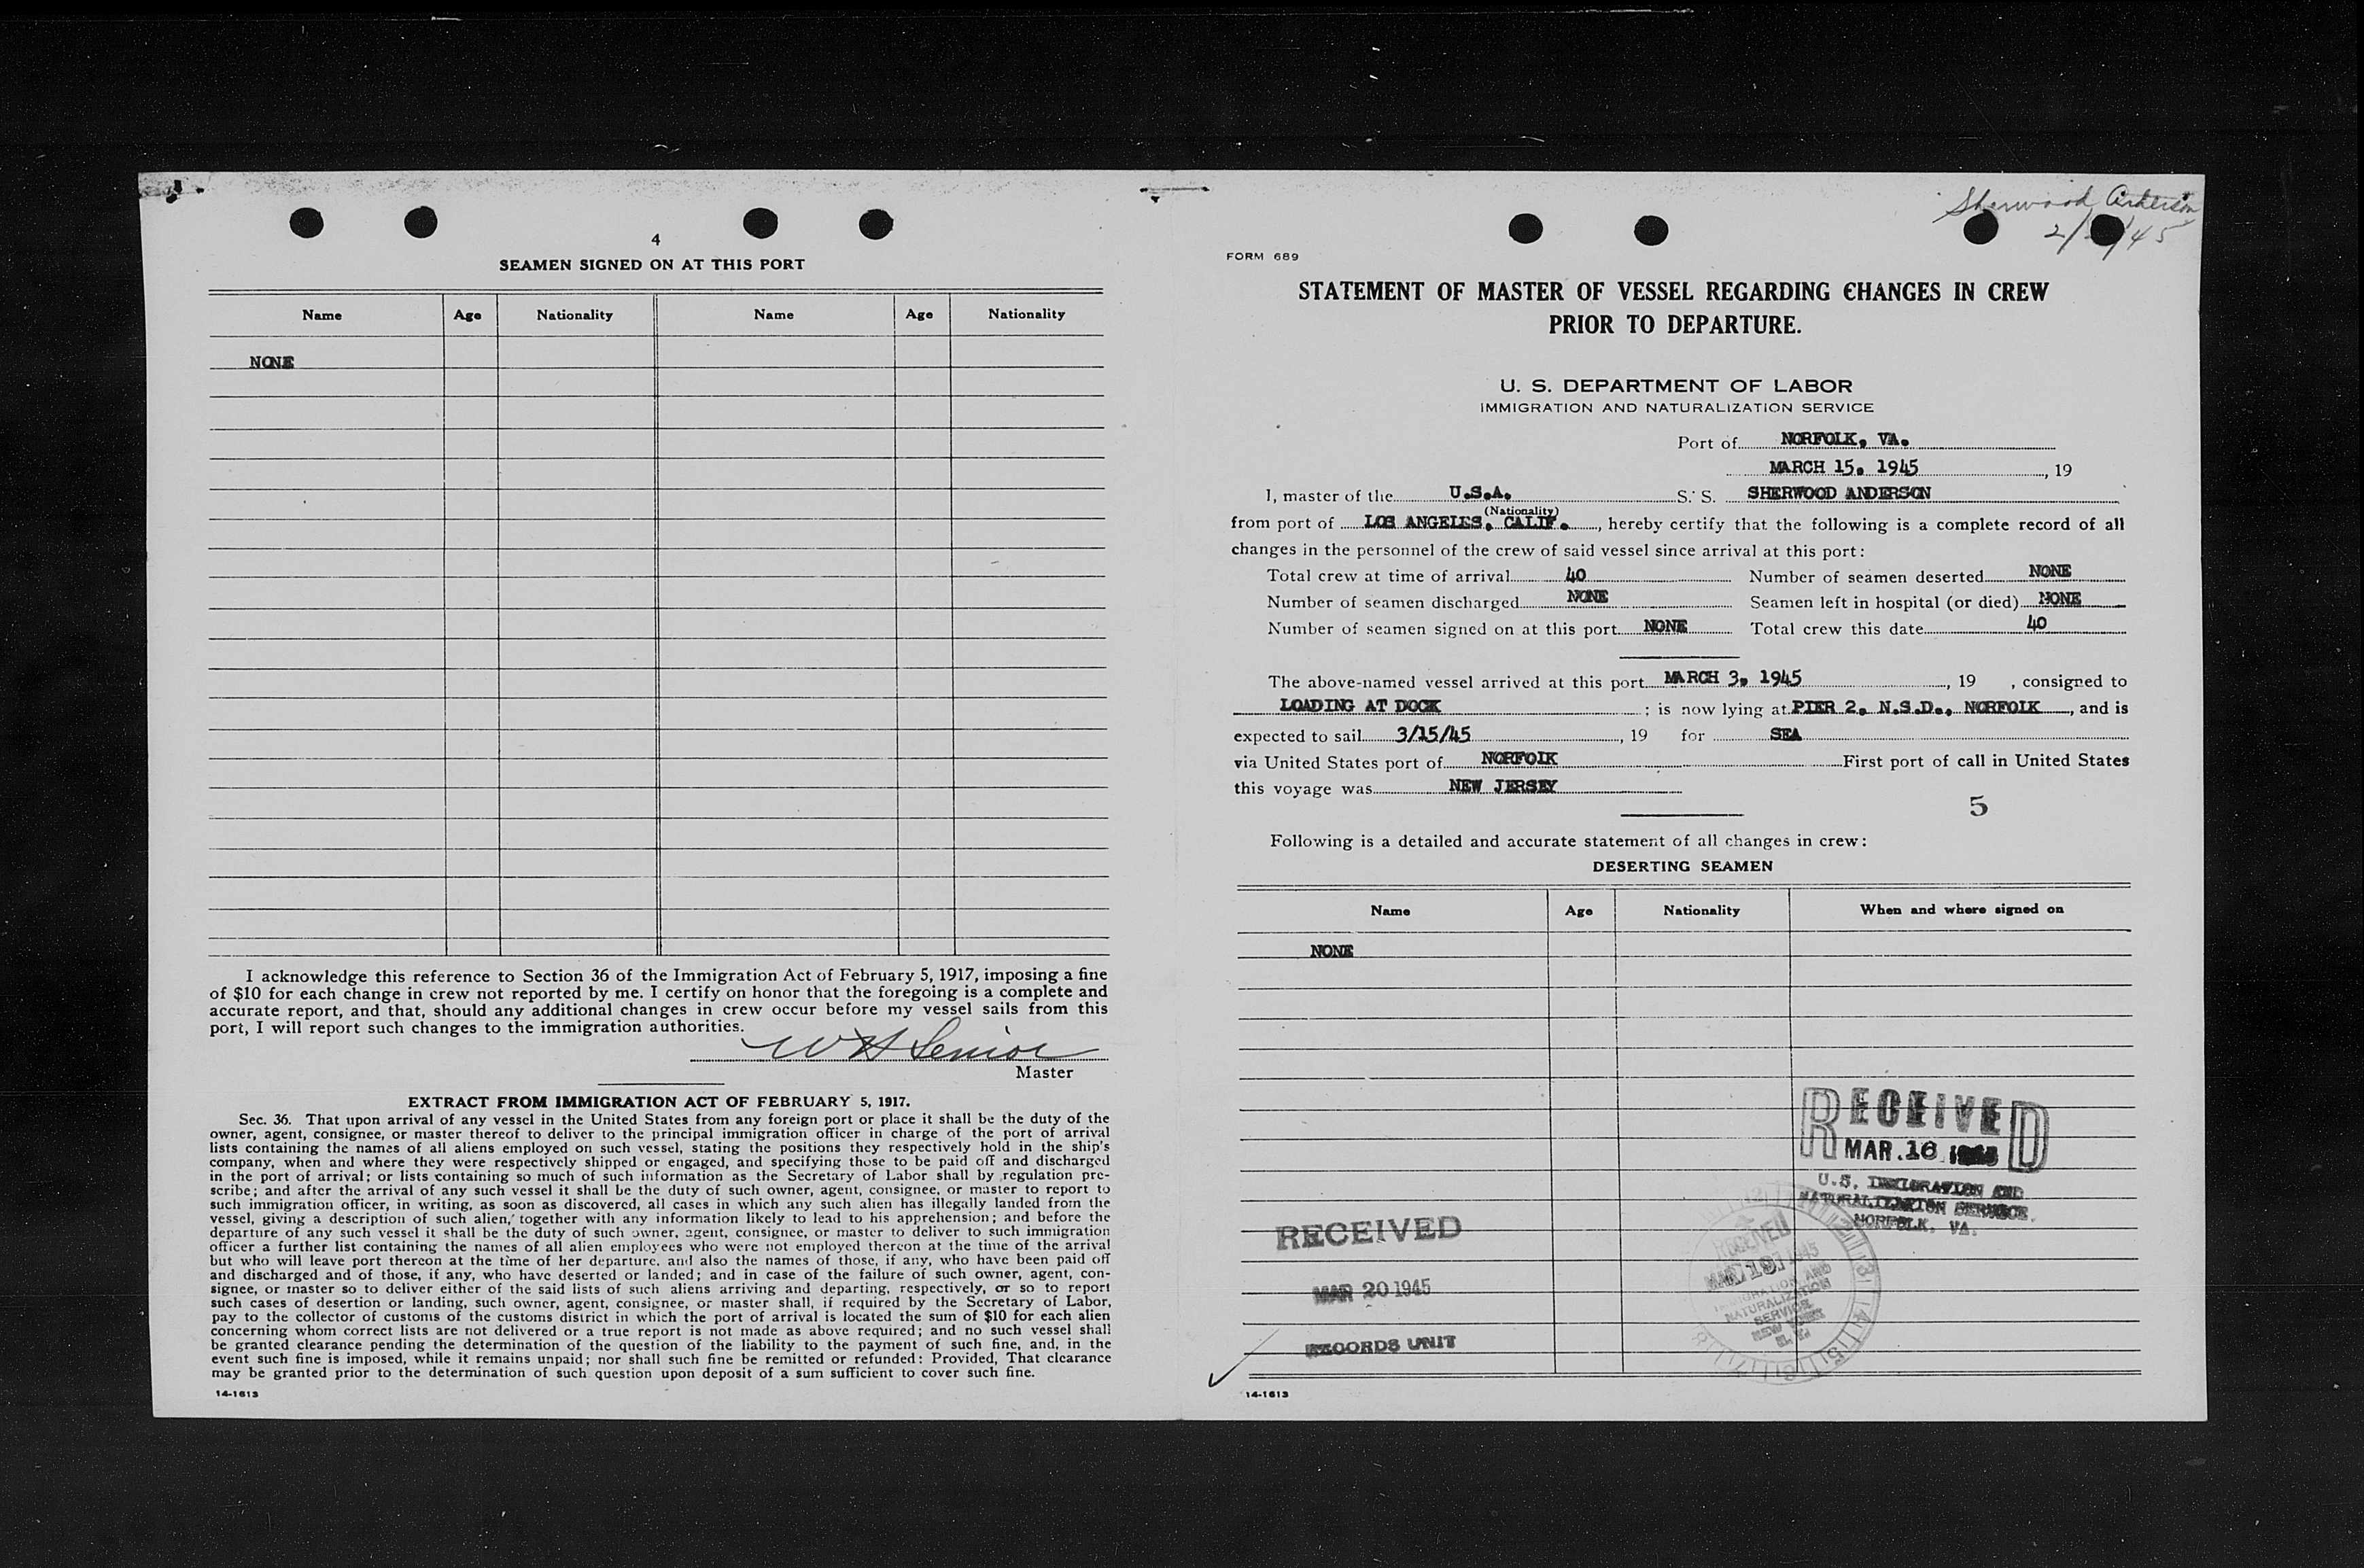 4
SEAMEN SIGNED ON AT THIS PORT
Name Age Nationality Name Age Nationality
NONE
I acknowledge this reference to Section 36 of the Immigration Act of February 5, 1917, imposing a fine
of $10 for each change in crew not reported by me. I certify on honor that the foregoing is a complete and
accurate report, and that, should any additional changes in crew occur before my vessel sails from this
port, I will report such changes to the immigration authorities.
W H Senior
Master
EXTRACT FROM IMMIGRATION ACT OF FEBRUARY 5, 1917.
Sec. 36. That upon arrival of any vessel in the United States from any foreign port or place it shall be the duty of the
owner, agent, consignee, or master thereof to deliver to the principal immigration officer in charge of the port of arrival
lists containing the names of all aliens employed on such vessel, stating the positions they respectively hold in the ship's
company, when and where they were respectively shipped or engaged, and specifying those to be paid off and discharged
in the port of arrival; or lists containing so much of such information as the Secretary of Labor shall by regulation pre-
scribe; and after the arrival of any such vessel it shall be the duty of such owner, agent, consignee, or master to report to
such immigration officer, in writing, as soon as discovered, all cases in which any such alien has illegally landed from the
vessel, giving a description of such alien, together with any information likely to lead to his apprehension; and before the
departure of any such vessel it shall be the duty of such owner, agent, consignee, or master to deliver to such immigration
officer a further list containing the names of all alien employees who were not employed thereon at the time of the arrival
but who will leave port thereon at the time of her departure, and also the names of those, if any, who have been paid off
and discharged and of those, if any, who have deserted or landed; and in case of the failure of such owner, agent, con-
signee, or master so to deliver either of the said lists of such aliens arriving and departing, respectively, or so to report
such cases of desertion or landing, such owner, agent, consignee, or master shall, if required by the Secretary of Labor,
pay to the collector of customs of the customs district in which the port of arrival is located the sum of $10 for each alien
concerning whom correct lists are not delivered or a true report is not made as above required; and no such vessel shall
be granted clearance pending the determination of the question of the liability to the payment of such fine, and, in the
event such fine is imposed, while it remains unpaid; nor shall such fine be remitted or refunded: Provided, That clearance
may be granted prior to the determination of such question upon deposit of a sum sufficient to cover such fine.
14-1613
Sherwood Anderson
FORM 689
STATEMENT OF MASTER OF VESSEL REGARDING CHANGES IN CREW
PRIOR TO DEPARTURE.
U. S. DEPARTMENT OF LABOR
IMMIGRATION AND NATURALIZATION SERVICE
Port of NORFOLK, VA.
MARCH 15, 1945, 19
I, master of the U.S.A. S. S. SHERWOOD ANDERSON
(Nationality)
from port of LOS ANGELES, CALIF., hereby certify that the following is a complete record of all
changes in the personnel of the crew of said vessel since arrival at this port:
Total crew at time of arrival 40 Number of seamen deserted NONE
Number of seamen discharged NONE Seamen left in hospital (or died) NONE
Number of seamen signed on at this port NONE Total crew this date 40
The above-named vessel arrived at this port MARCH 3, 1945, 19 , consigned to
LOADING AT DOCK ; is now lying at PIER 2, N.S.D., NORFOLK, and is
expected to sail 3/15/45, 19 for SEA
via United States port of NORFOLK First port of call in United States
this voyage was NEW JERSEY
5
Following is a detailed and accurate statement of all changes in crew:
DESERTING SEAMEN
Name Age Nationality When and where signed on
NONE
RECEIVED
MAR. 16 1945
U.S. IMMIGRATION AND
NATURALIZATION SERVICE.
NORFOLK, VA.
RECEIVED
MAR 20 1945
RECORDS UNIT
RECEIVED
IMMIGRATION AND
NATURALIZATION
SERVICE
NEW YORK
N. Y.
14-1613